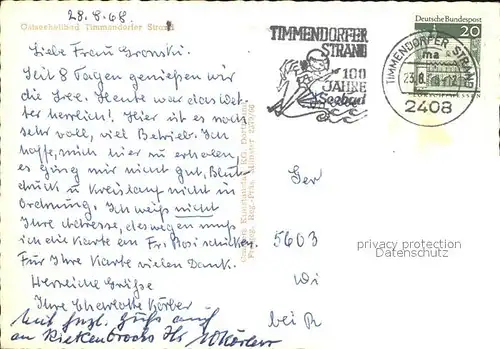 28.8.68.
Ostseeheilbad Timmendorfer Strand
Liebe Frau Gronski.
Seit 8 Tagen genießen wir
die See. Heute war das Wet-
ter herrlich! Hier ist es noch
sehr voll, viel Betrieb. Ich
hoffe, mich hier zu erholen,
es ging mir nicht gut, Blut-
druck u Kreislauf nicht in
Ordnung. Ich weiß nicht
Ihre Adresse, deswegen muß
ich die Karte an Fr. Bosi schicken.
Für Ihre Karte vielen Dank.
Herzliche Grüße
Ihre Charlotte Körber
Mit frzl. Gruß auch
an Riekenbrocks Ihr
TIMMENDORFER
STRAND
100
JAHRE
Seebad
Deutsche Bundespost
20
TIMMENDORFER STRAND
ma
2408
Ger
5603
Wi
bei R
privacy protection
Datenschutz